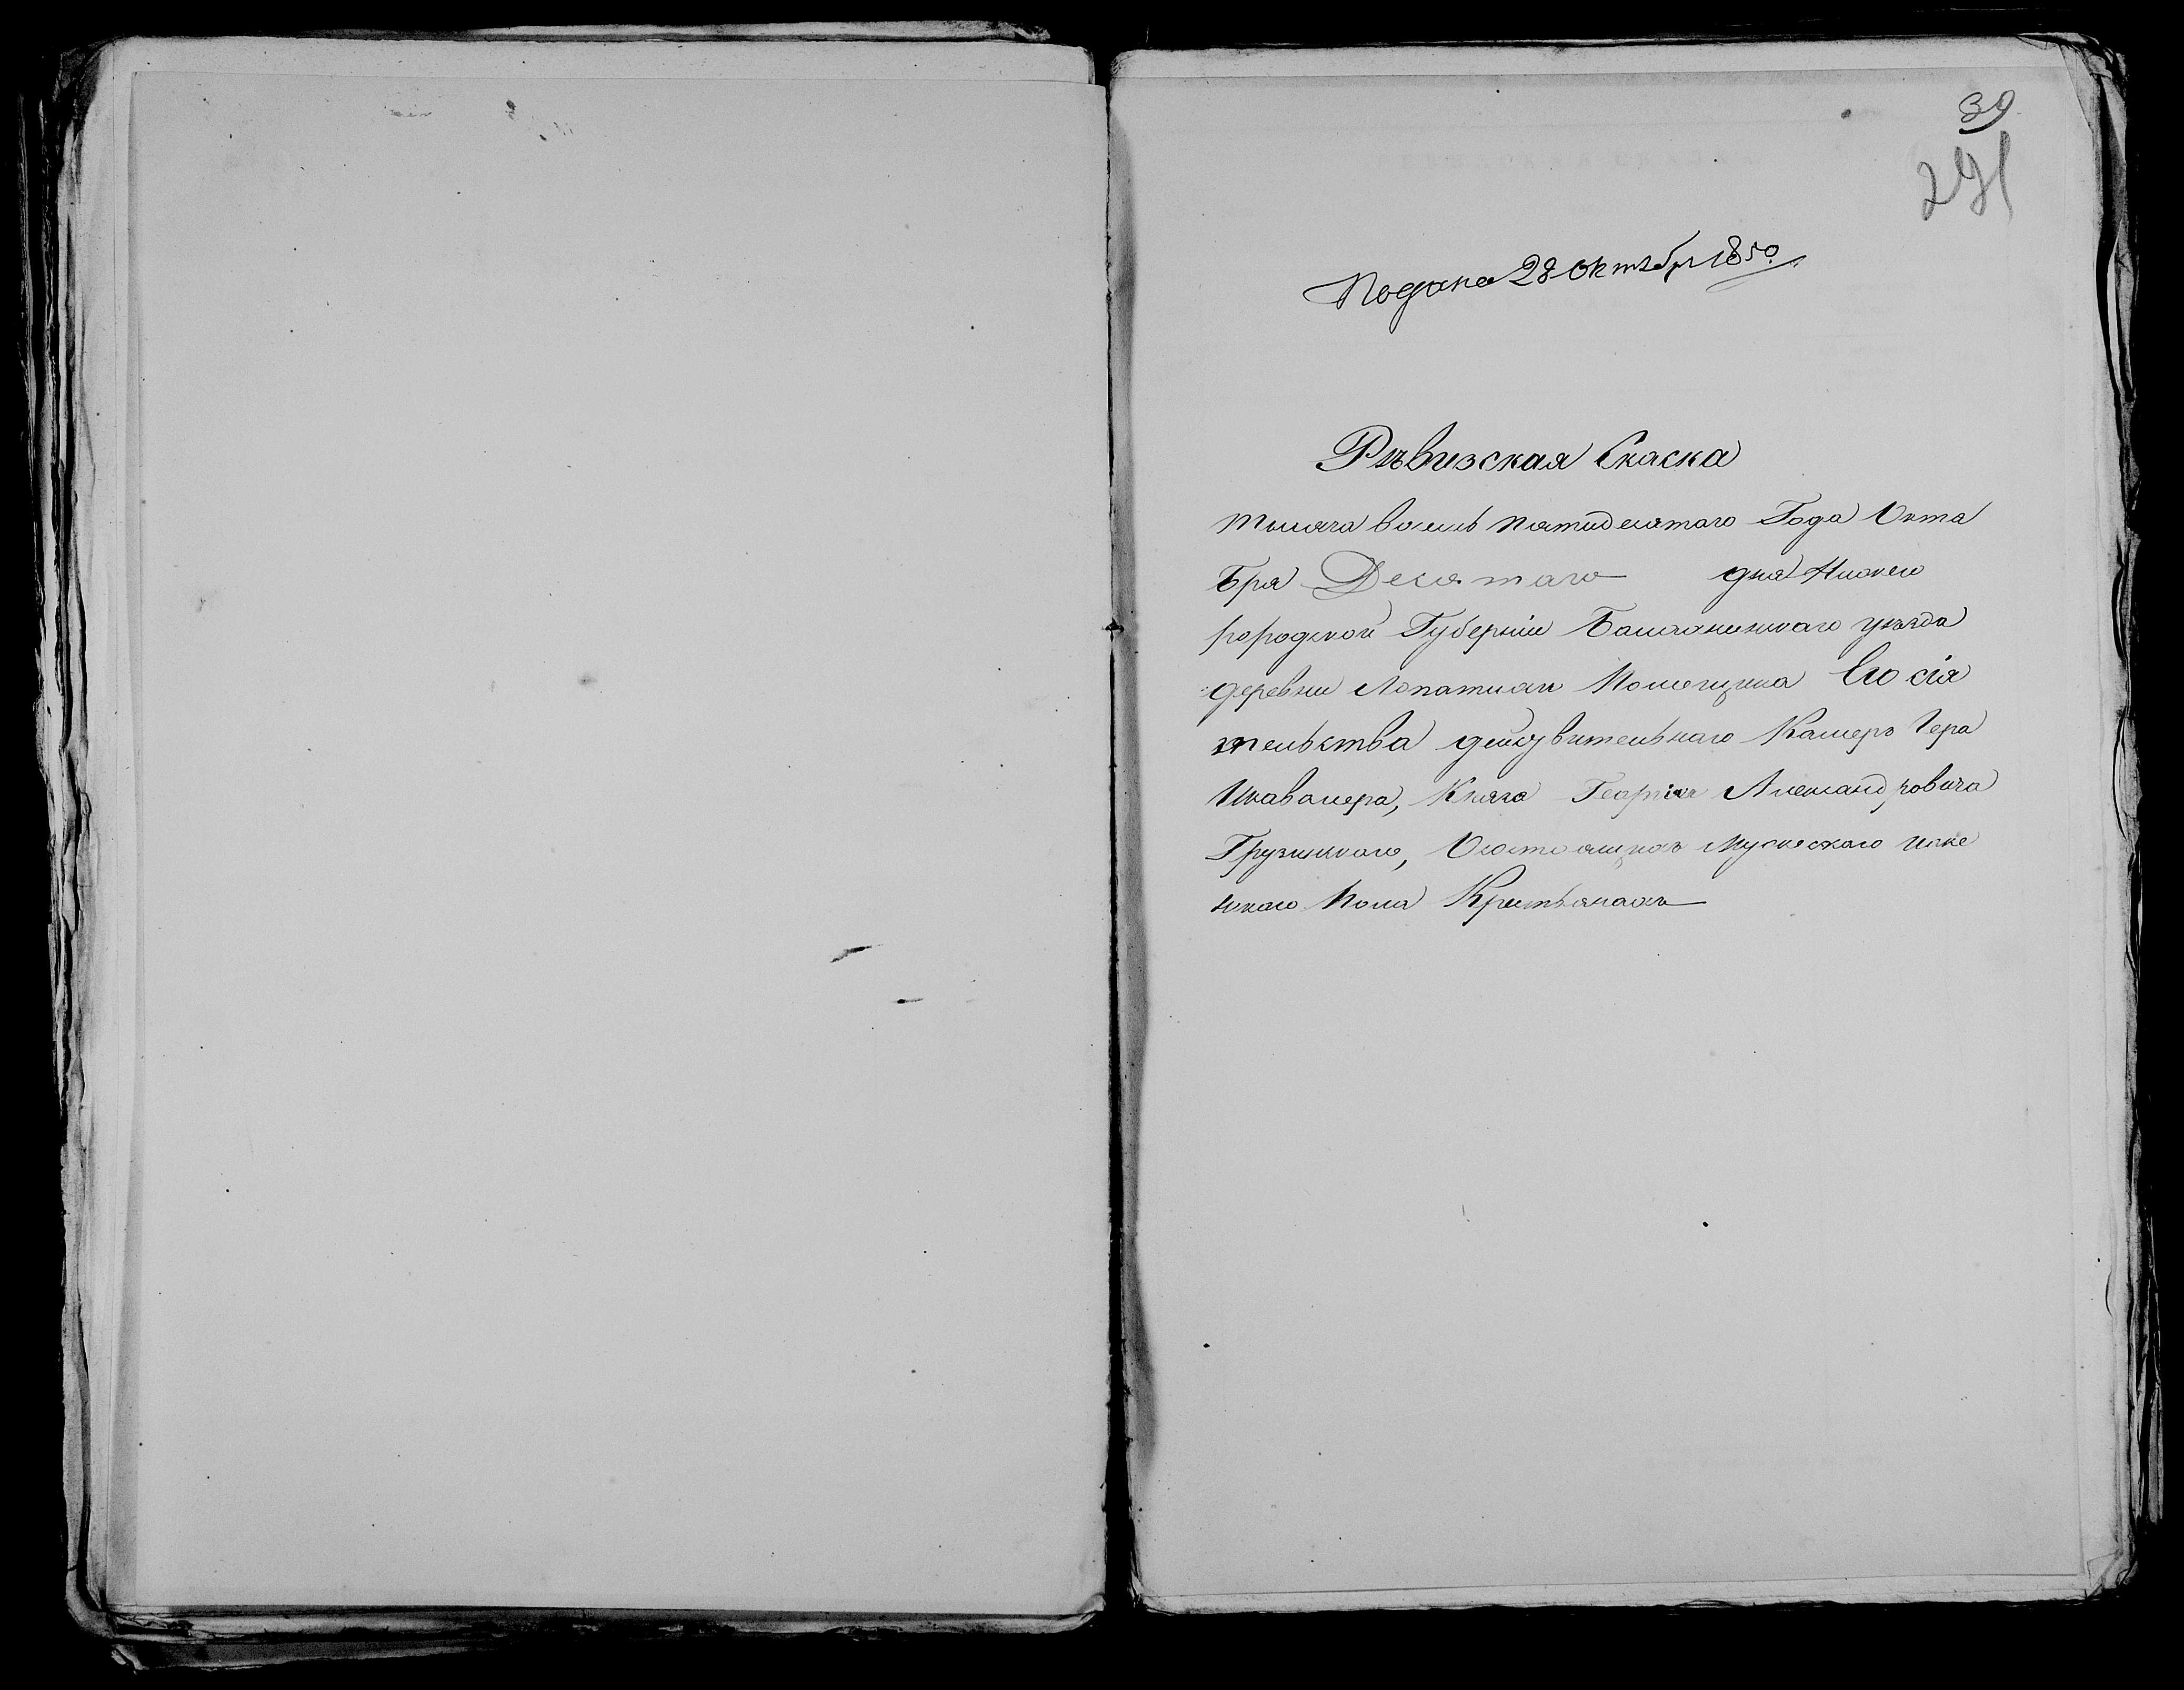 39
291
Подана 28 Октября 1850
Рѣвизская Скаска
тысяча восемь пятидесятаго Года Октя
Бря Десятаго дня Нижего
родской Губерніи Балахнинскаго уѣзда
деревни Лопатихи Помещика Его сія
тельства действительнаго Камеръ Гера
Икавалера, Князя Георгія Александровича
Грузинскаго, Осостоящихъ Мужескаго иже
нскаго Пола Крестьянахъ